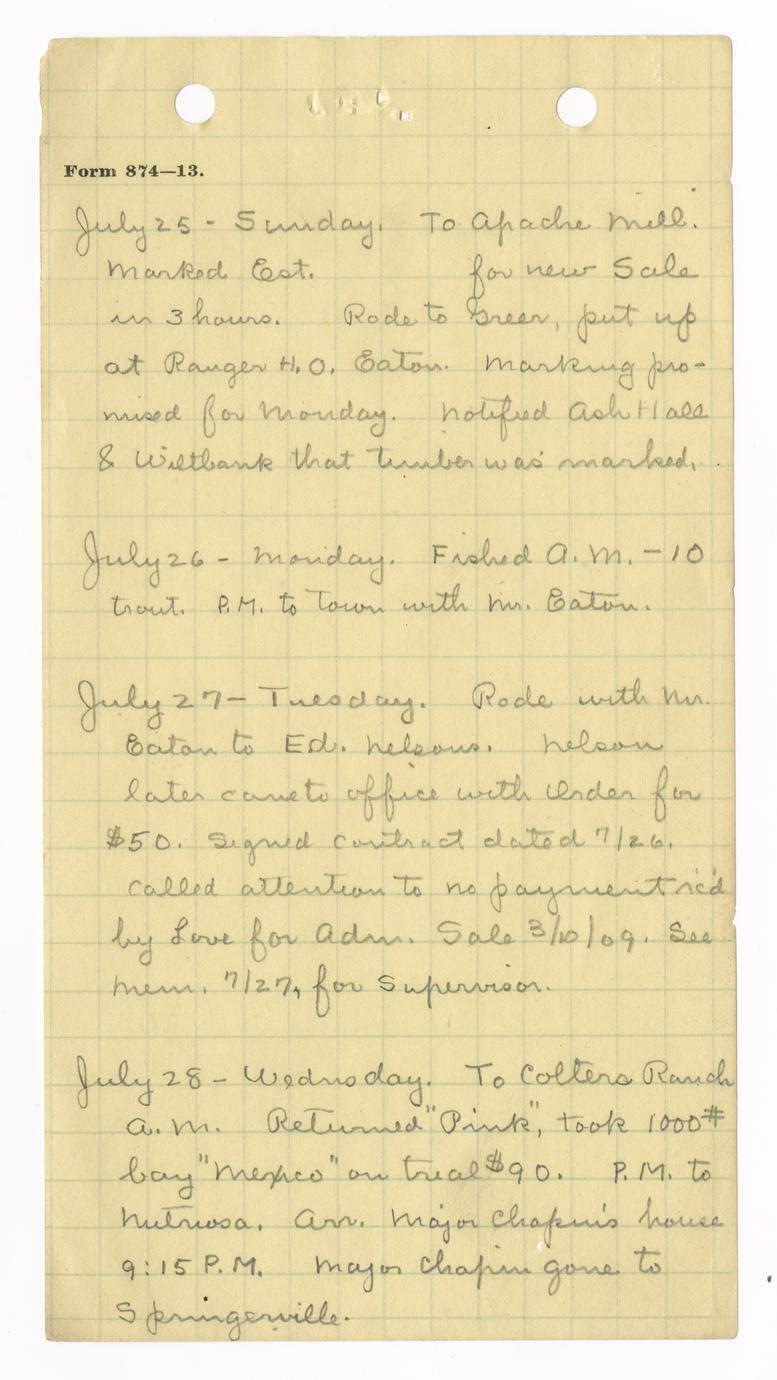 Form 874—13.
July 25 - Sunday. To Apache Mill.
Marked Est. for new Sale
in 3 hours. Rode to Greer, put up
at Ranger H.O. Eaton. Marking pro-
mised for Monday. Notified Ash Hall
& Wiltbank that timber was marked.
July 26 - Monday. Fished A.M. - 10
trout. P.M. to Town with Mr. Eaton.
July 27 - Tuesday. Rode with Mr.
Eaton to Ed. Nelsons. Nelson
later came to office with Order for
$50. Signed contract dated 7/26.
Called attention to no payment rc'd
by Love for Adm. Sale 3/10/09. See
Mem. 7/27, for Supervisor.
July 28 - Wednsday. To Colters Ranch
A.M. Returned "Pink", took 1000#
bay "Mexico" on trial $90. P.M. to
Nutriosa. Arr. Major Chapin's house
9:15 P.M. Major Chapin gone to
Springerville.